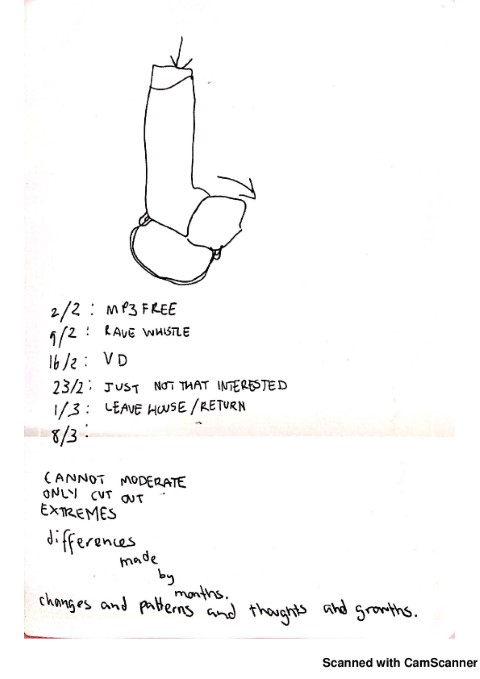 2/2 : MP3 FREE
9/2 : RAVE WHISTLE
16/2 : VD
23/2 : JUST NOT THAT INTERESTED
1/3 : LEAVE HOUSE / RETURN
8/3 :
CANNOT MODERATE
ONLY CUT OUT
EXTREMES
differences
made
by
months.
changes and patterns and thoughts and growths.
Scanned with CamScanner